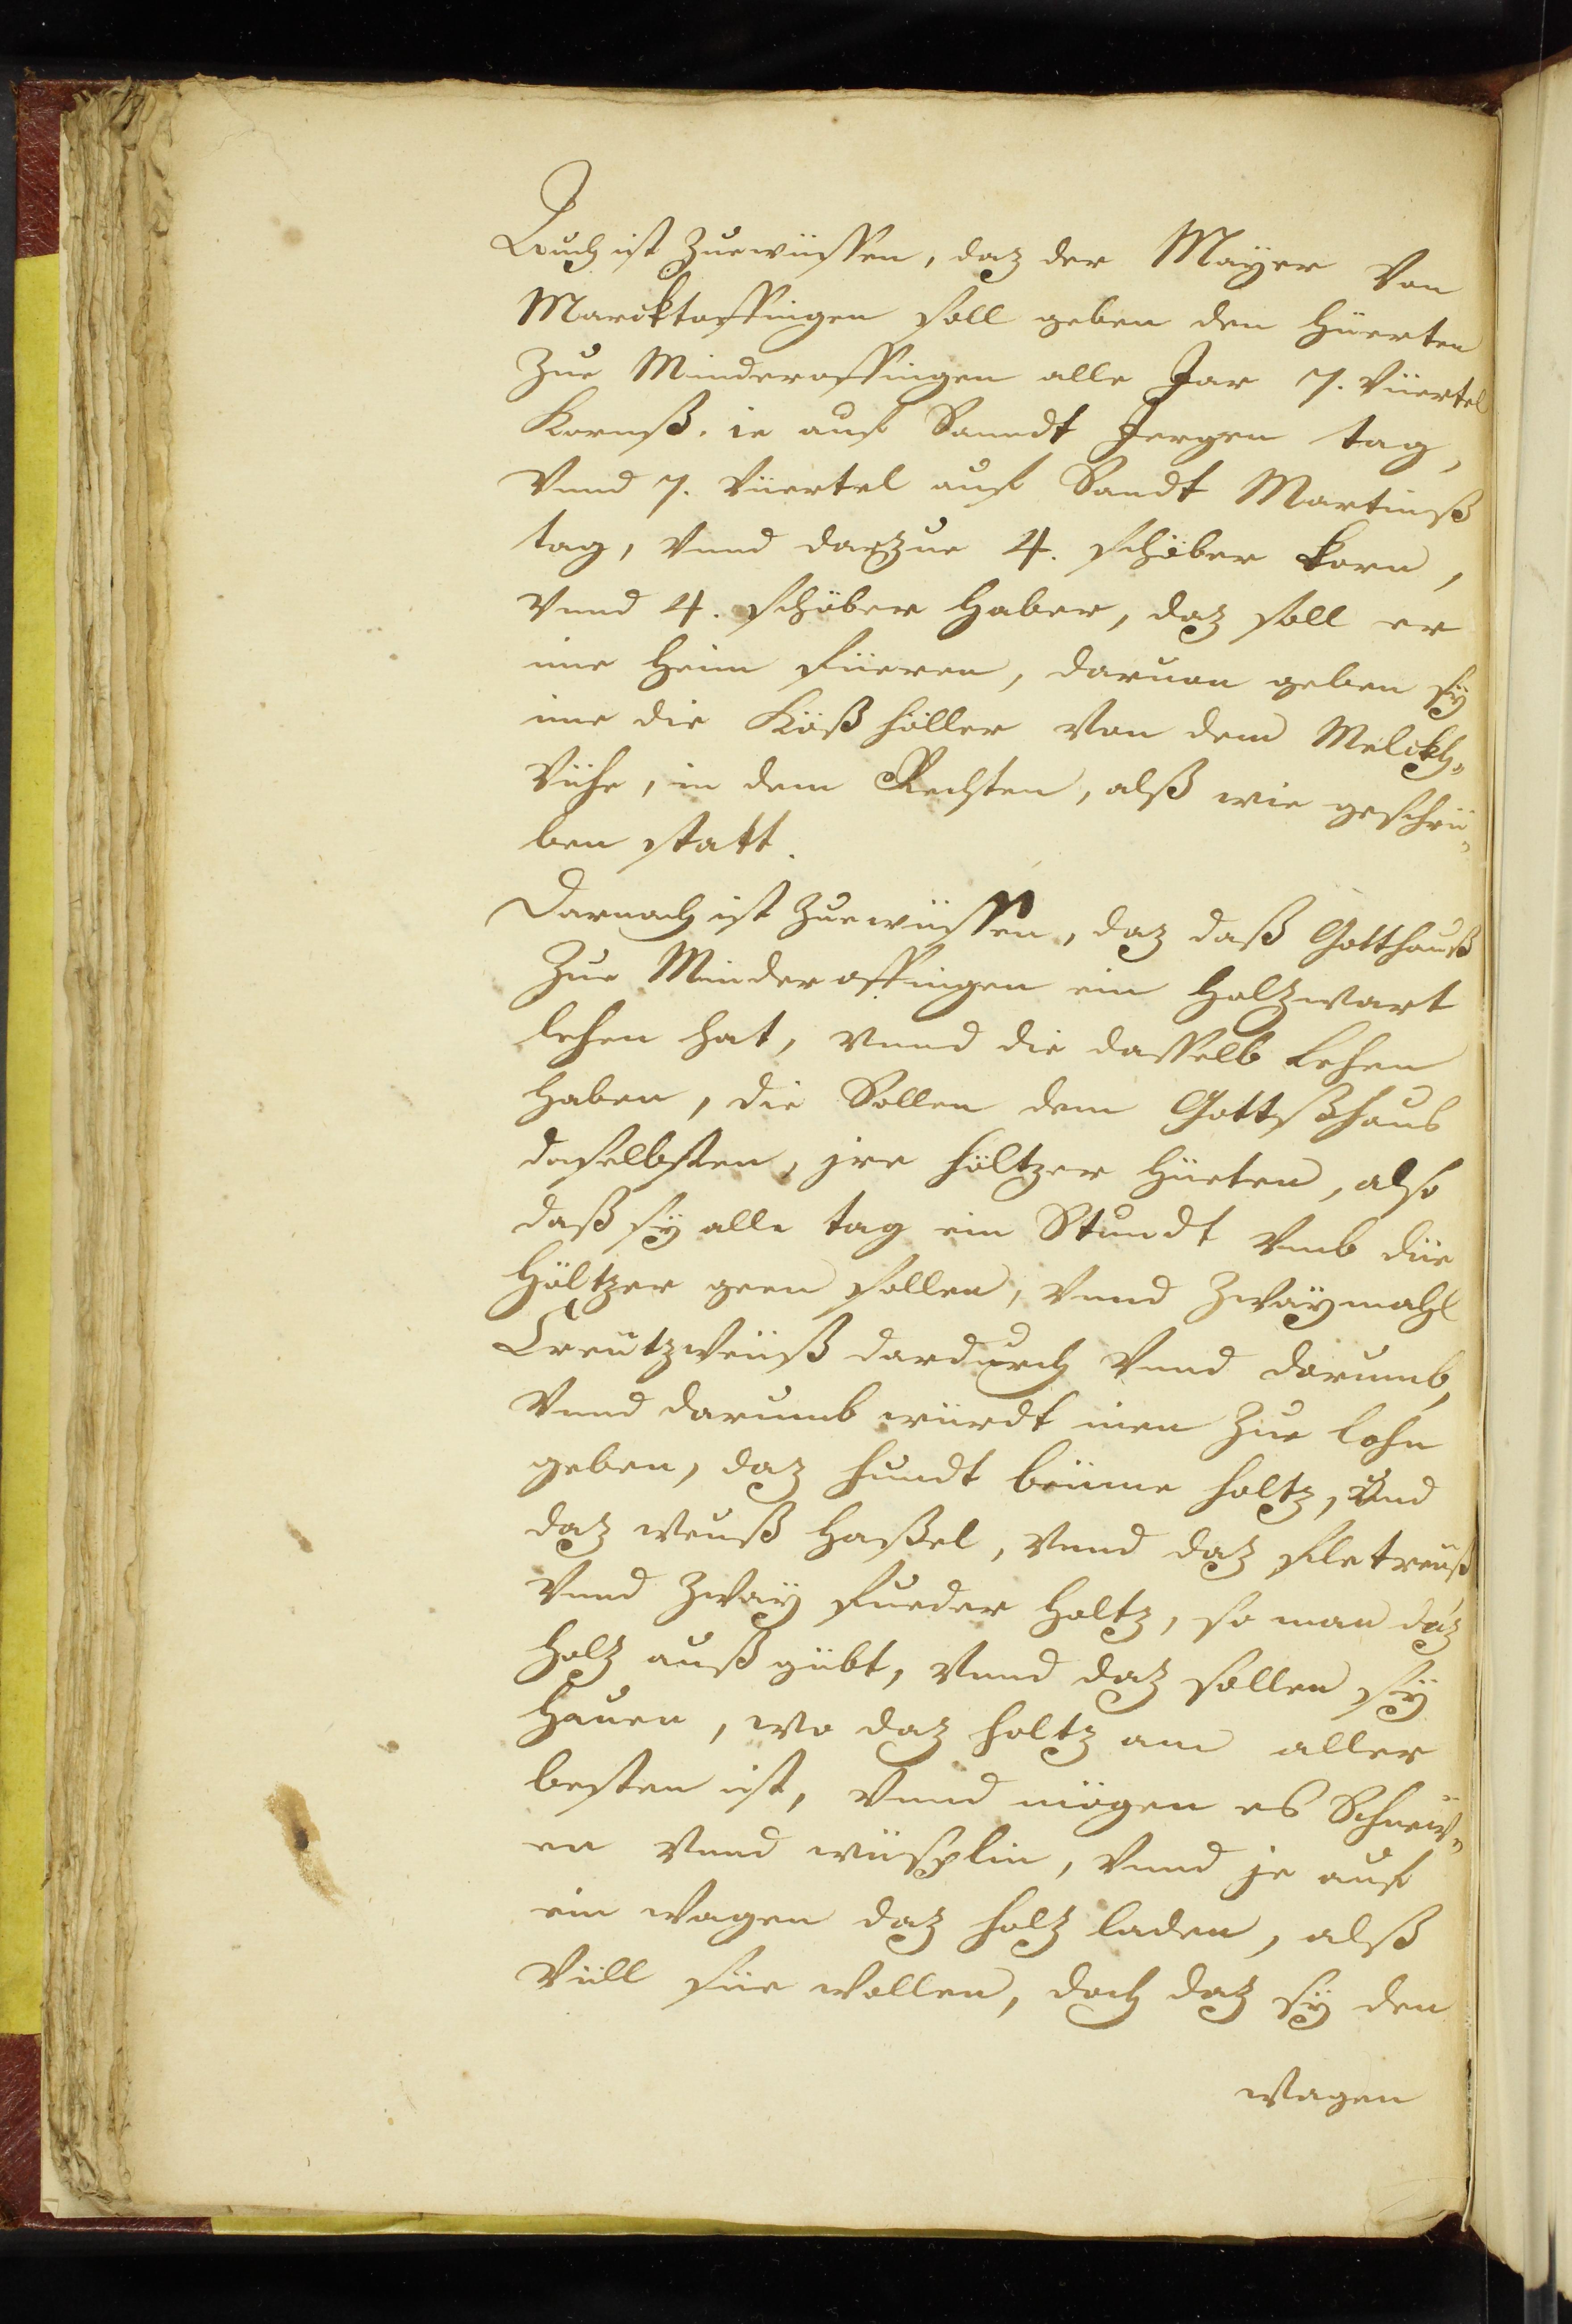 Auch ist Zuewüssen, daz der Mayer Von
Marckhtoffingen soll geben den Hüerten
Zue Minderoffingen alle Jar 7. Vüertel
Kornß. ie auf Sanndt Jergen tag,
Vnnd 7. Vüertel auf Sandt Martinß
tag, Vnnd darzue 4. schöber korn,
Vnnd 4. schöber Haber, daz soll er
ime Heim Füeren, daruon geben sÿ
ime die Käß höller Von dem Melckh„
Vühe, in dem Rechten, alß wie geschrü„
ben statt.
Darnach ist Zuewüssen, daz daß Gotthauß
Zue Minderoffingen ein Holtzwart
lehen hat, Vnnd die dasselb Lehen
Haben, die Sollen dem Gottßhauß
daselbsten, jre höltzer Hüeten, also
daß sÿ alle tag ein Stundt Vmb die
Höltzer geen sollen, Vnnd Zwaÿmahl
Creützweiiß dardurch Vnnd darumb,
Vnnd darumb würdt inen Zue lohn
geben, daz hundt beiime holtz, Vnd
daz weuß Haßel, Vnnd daz
Vnnd Zwaÿ Fueder Holtz, so man daz
Holz auß gübt, Vnnd daz sollen sÿ
Hauen, wo daz holtz am aller
besten ist, Vnnd mögen es Schneid„
en Vnnd Vnnd je auf
ein Wagen daz holz laden, alß
Vüll sie wollen, doch daz sÿ den
Wagen